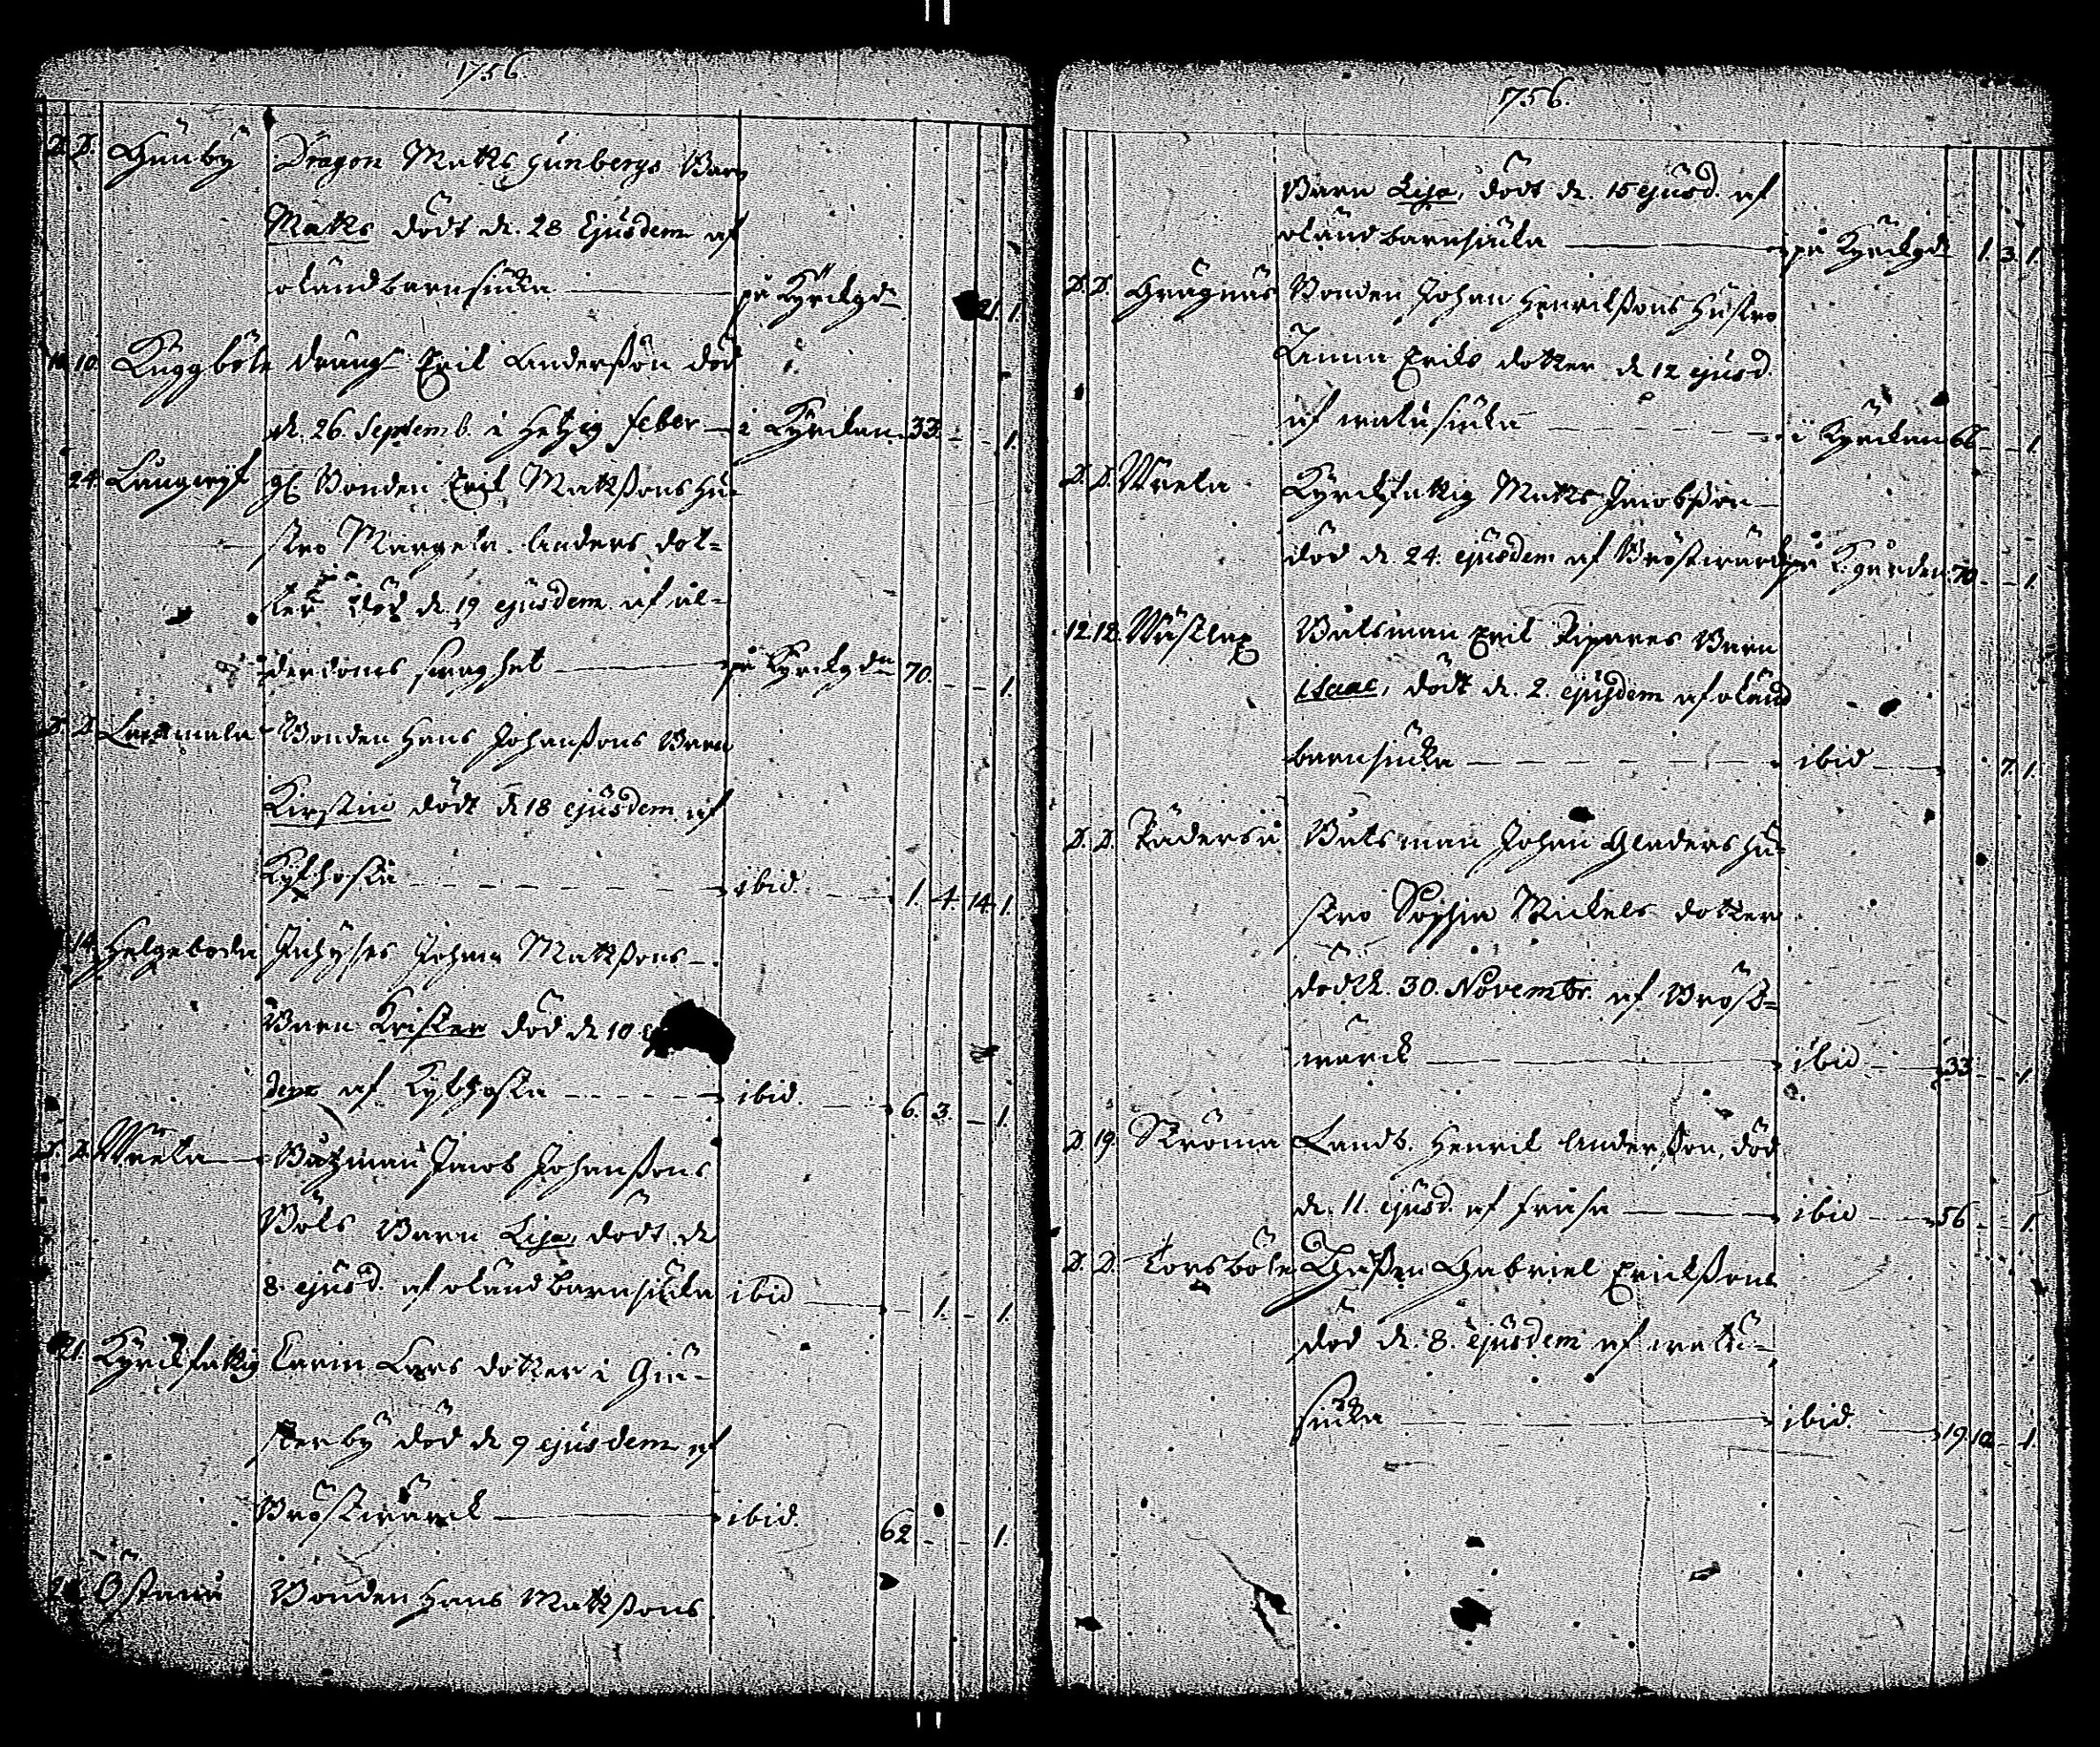 1756.
D. D. Gunby Dragon Matts Gunbergs Barn
Matts dödt d. 28 Ejusdem af
okänd barnsiuka på Kyrckgd 21. 1.
10. Kuggböle drängn Eric Andersson död
d. 26. Septemb. i Hetzig feber i Kyrckan 33. - - 1.
24. Långwyk gl. Bonden Eric Mattssons hu-
stro Margeta Anders dot-
ter död d. 19 ejusdem af ål-
derdoms swaghet på Kyrckgdn 70. - - 1.
D. D. Bonden Hans Johanssons Barn
Kirstin dödt d 18 ejusdem af
Kykhosta ibid. 1. 4. 14. 1.
Helgeboda Inhyses Johan Mattssons
Barn Krister död d 10
dem af Kykhosta ibid. 6. 3. - 1.
D. D. Wreta Båtzman Jacob Johanssons
Böls Barn Lisa, dödt d
8. ejusd. af okänd barnsiuka ibid - 1. - 1.
21. Kyrckfattig Carin Lars dotter i Giu-
sterby död d 9 ejusdem af
Bröstwärck ibid. 62 - - 1.
Östanå Bonden Hans Mattssons
1756.
Barn Lisa, dödt d. 15 ejusd. af
okänd barnsiuka på Kyrckgd 1. 3. 1.
D. D. Grägnäs Bonden Johan Henrickssons Hustro
Anna Erics dotter d 12 ejusd.
af matusiuka i Kyrckan 66 - - 1.
D. D. Wreta Kyrckfattig Matts Jacobsson
död d. 24. ejusdem af Bröstwärck på K:gården 70 - - 1.
12. 12. Wästlax Båtsman Eric Ripares Barn
Isaac, dödt d. 2. ejusdem af okänd
barnsiuka ibid 7. 1.
D. D. Rådersiö Båtsman Johan Gladers hu-
stro Sophia Mickels dotter
död d. 30. Novembr. af Bröst-
wärck ibid 33 - - 1.
D. 19. Ströma Landb. Henric Andersson, död
d. 11. ejusd. af fråsa ibid 56 - - 1.
D. D. Torsböle Gabriel Ericksson
död d. 8. ejusdem af matu-
siuka ibid. 19. 10 - 1.